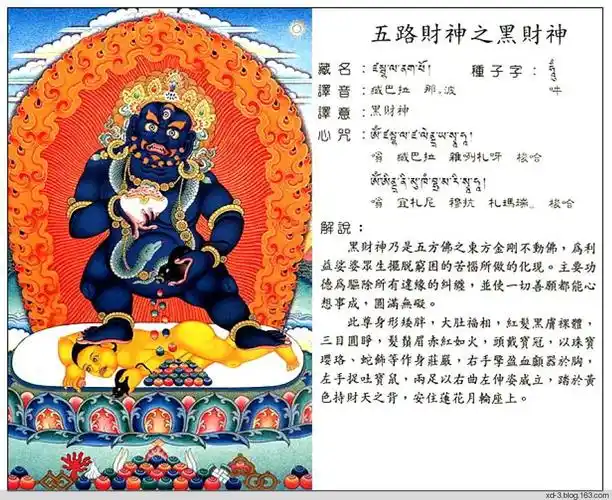 五路財神之黑財神
藏名：ཛམྦྷ་ལ་ནག་པོ། 種子字：ཧཱུྃ
譯音：咸巴拉 那‧波 吽
譯意：黑財神
心咒：ཨོཾ་ཛམྦྷ་ལ་ཛ་ལེནྡྲ་ཡ་སྭཱ་ཧཱ།
嗡 咸巴拉 雜咧札呀 梭哈
ཨོཾ་ཨིནྡྲ་ནི་མུ་ཁཾ་བྷྲ་མ་རི་སྭཱ་ཧཱ།
嗡 宜札尼 穆抗 札瑪瑞 梭哈
解說：
黑財神乃是五方佛之東方金剛不動佛，為利
益婆婆眾生擺脫窮困的苦惱所做的化現。主要功
德為驅除所有違緣的糾纏，並使一切善願都能心
想事成，圓滿無礙。
此尊身形矮胖，大肚福相，紅髮黑膚裸體，
三目圓睜，髮鬚眉赤紅如火，頭戴寶冠，以珠寶
瓔珞、蛇飾等作身莊嚴，右手擎盈血顱器於胸，
左手捉吐寶鼠，兩足以右曲左伸姿成立，踏於黃
色持財天之背，安住蓮花月輪座上。
xd-3.blog.163.com